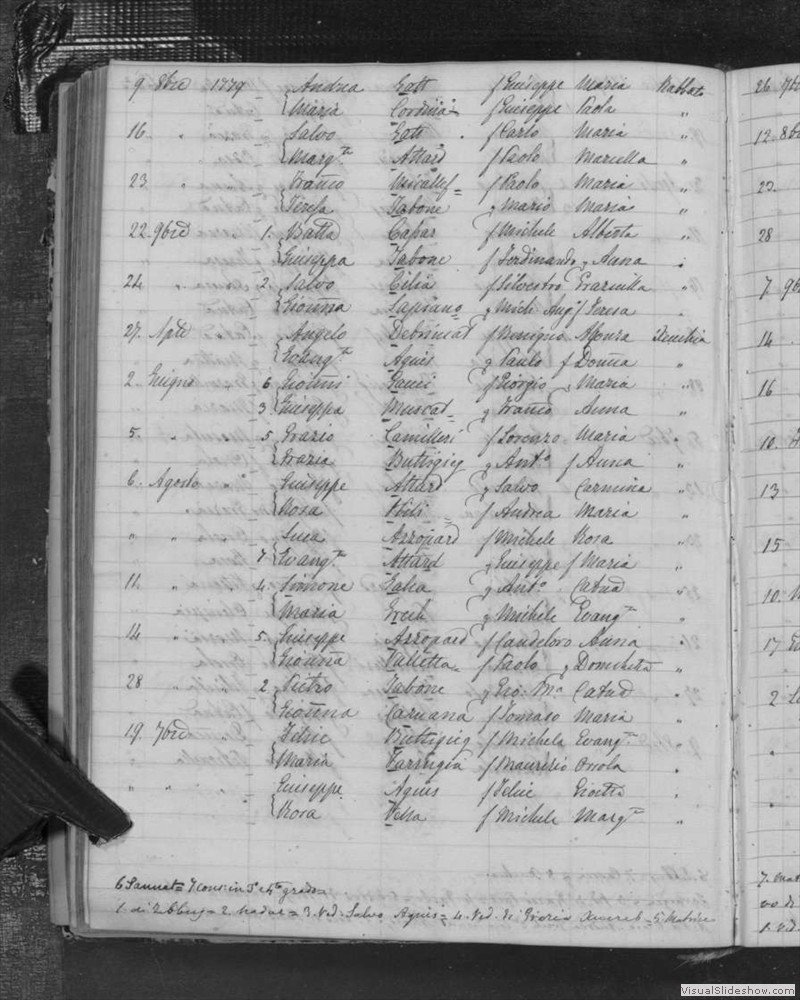 9 8bre 1779 Andrea Gatt f Giuseppe Maria Rabbato
Maria Cordina f Giuseppe Paola "
16 " Salvo Gatt f Carlo Maria "
Marg.ta Attard f Paolo Mariella "
23 " Franco Micallef f Paolo Maria "
Teresa Tabone q Mario Maria "
22 9bre 1. Batta Capar f Michele Alberta "
Giuseppa Tabone f Ferdinando q Anna "
24 2. Salvo Cilia f Silvestro Graziulla "
Gioanna Sapiano q Mich: Ang: f Teresa "
27. Aple Angelo Debrincat f Benigno Alfonza
Evang.ta Agius q Paulo f Domca "
2. Giugno 6. Gioanni Gauci f Giorgio Maria "
3. Giuseppa Muscat q Franco Anna "
5. " 5. Grazio Camilleri f Lorenzo Maria "
Grazia Buttigieg q Anto f Anna "
6. Agosto " Giuseppe Attard q Salvo Carmina "
Rosa Hili f Andrea Maria "
" " Luca Azzopard f Michele Rosa "
7 Evang.ta Attard q Giuseppe f Maria "
11. " 4. Simone Galea q Anto Catna "
Maria Grech q Michele Evang.ta "
14 " 5. Giuseppe Azzopard f Candeloro Anna "
Gioanna Valletta f Paolo q Domenica "
28 " 2. Pietro Tabone q Gio: Ma Catna "
Gioanna Caruana f Tomaso Maria "
19. 7bre Felice Buttigieg f Michele Evang.ta "
Maria Farrugia f Maurizio Orsola "
" " Giuseppe Agius f Felice "
Rosa Vella f Michele Marg.ta "
6 Sannat = 7 Cons: in 3° e 4to grado =
1. di = 2. Nadur = 3. Ved. Salvo Agius = 4. Ved. di Grazia = 5. Matrice
26 7b
12. 8b
23.
28
7 9b
14
16
10.
13
15
10.
17
2
7. Mat
1. Ved
VisualSlideshow.com